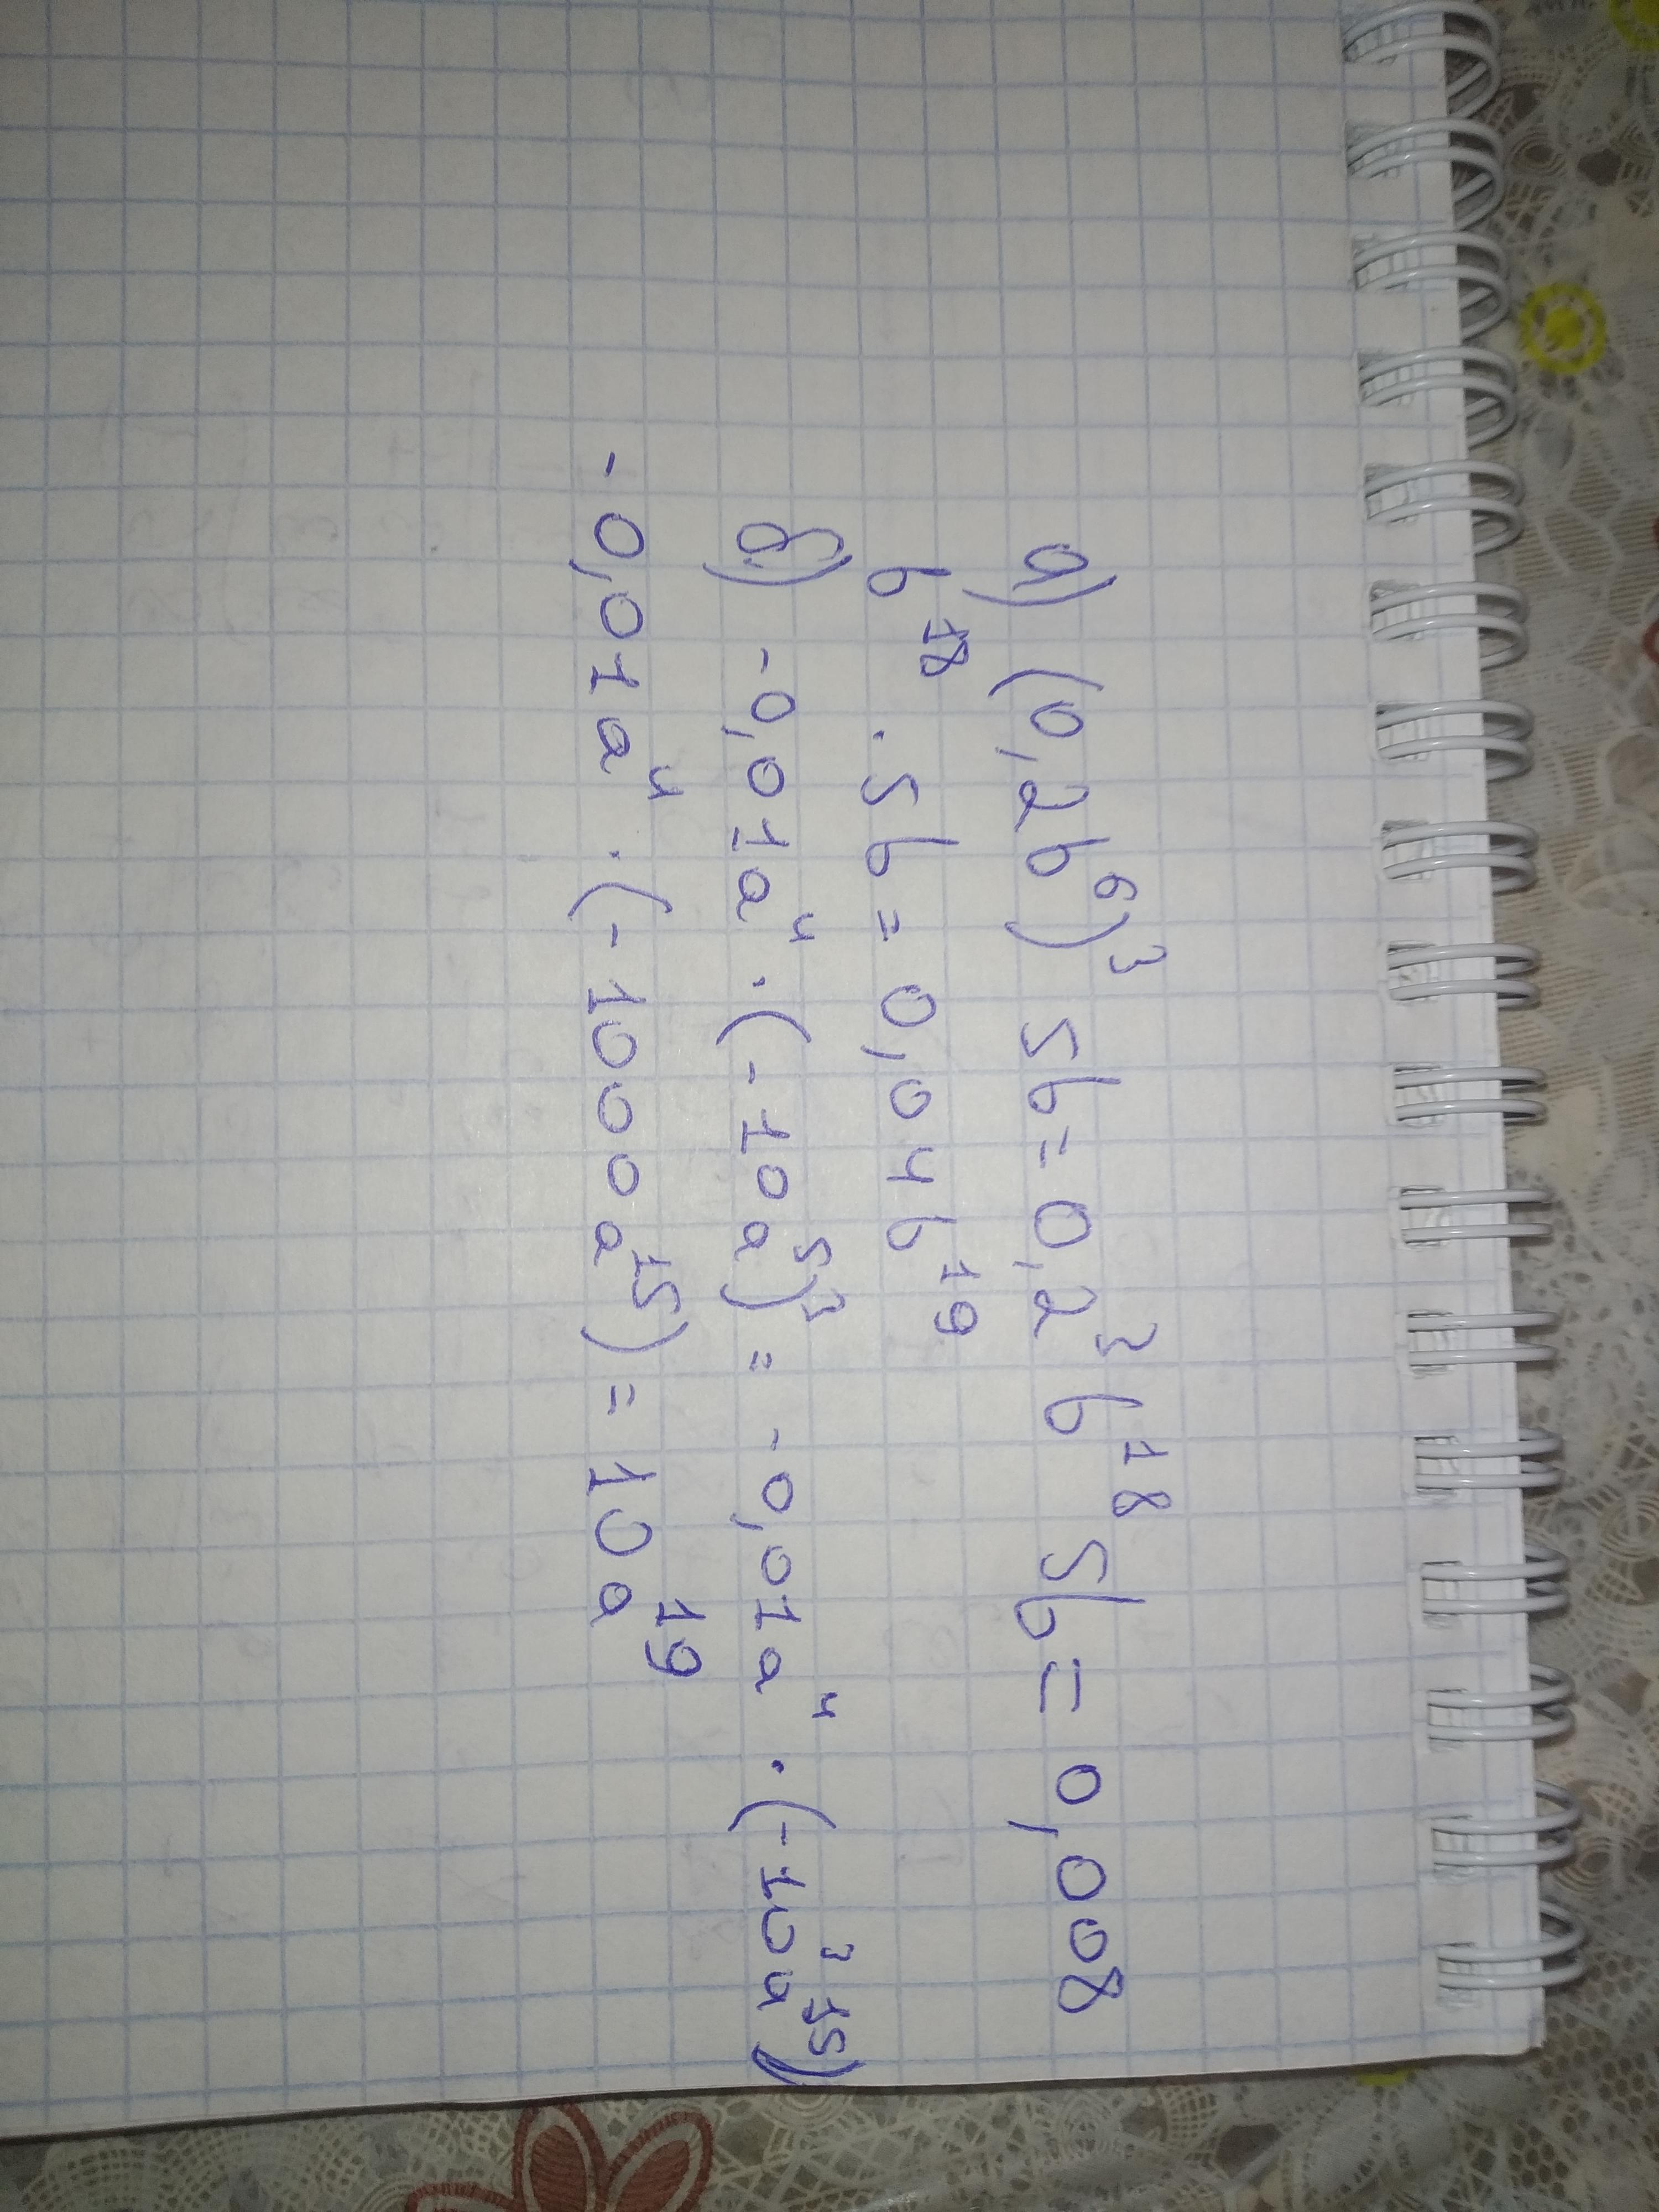 а) (0,2b⁶)³ 5b = 0,2³ b¹⁸ 5b = 0,008
b¹⁸ · 5b = 0,04b¹⁹
б) -0,01a⁴ · (-10a⁵)³ = -0,01a⁴ · (-10³a¹⁵)
-0,01a⁴ · (-1000a¹⁵) = 10a¹⁹